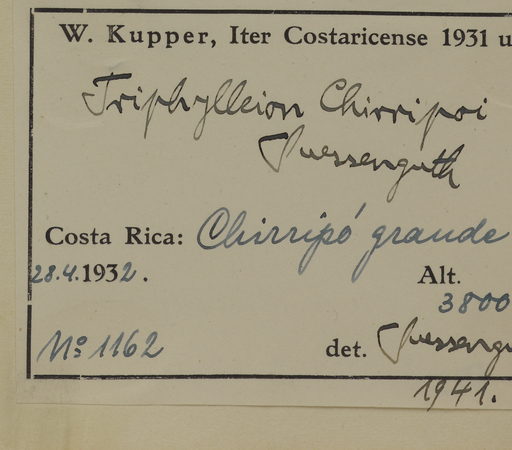 W. Kupper, Iter Costaricense 1931 u
Triphylleion Chirripoi
Suessenguth
Costa Rica: Chirripó grande
28.4.1932. Alt.
3800
No 1162 det. Suesseng
1941.